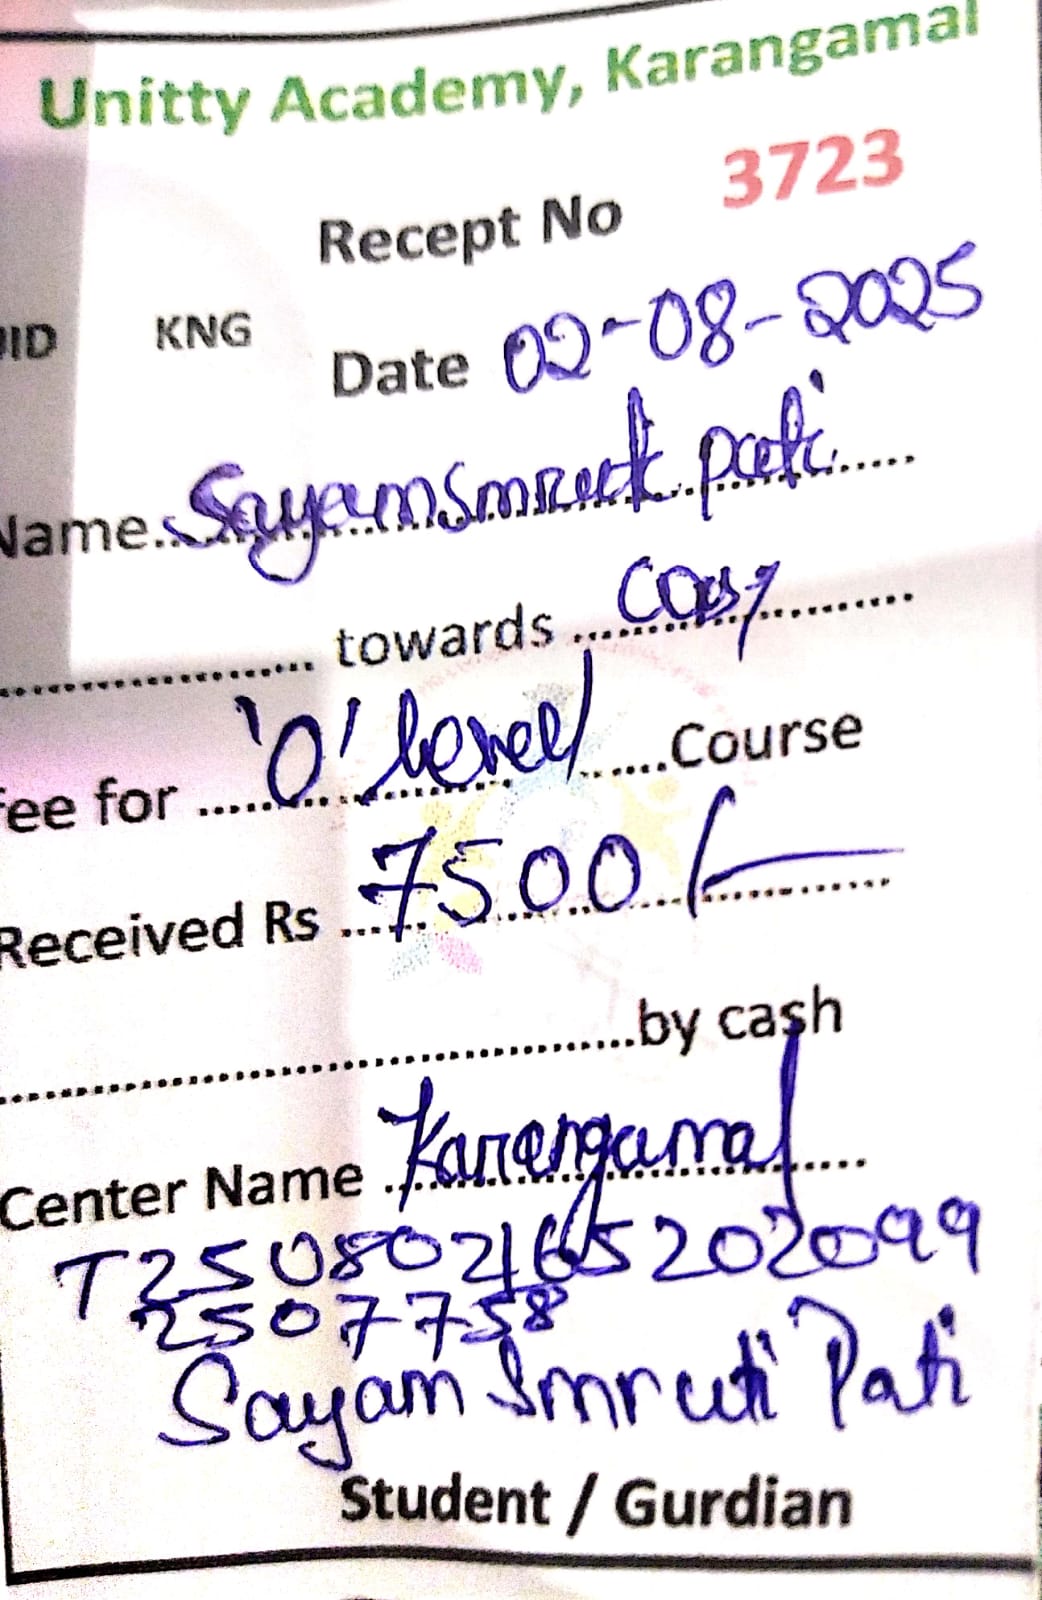 Unitty Academy, Karangamal
3723
Recept No
KNG
Date 02-08-2025
Name Sayam Smruti pati
towards
fee for 'O' level Course
Received Rs 7500/-
by cash
Center Name Karangamal
T250802165202099
2507758
Sayam Smruti Pati
Student / Gurdian